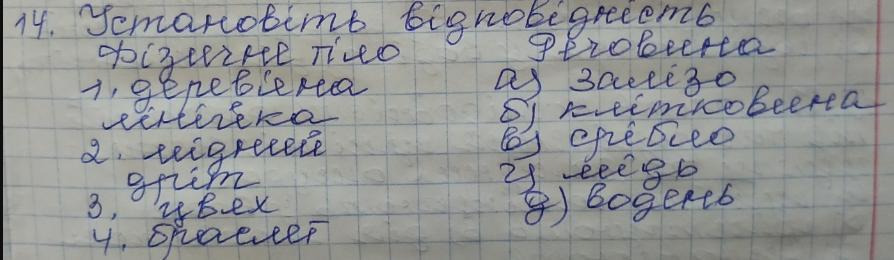 14. Установіть відповідність
Фізичне тіло Речовина
1. дерев'яна а) залізо
лінійка б) клітковина
2. мідний в) срібло
дріт г) мідь
3. цвях д) водень
4. браслет